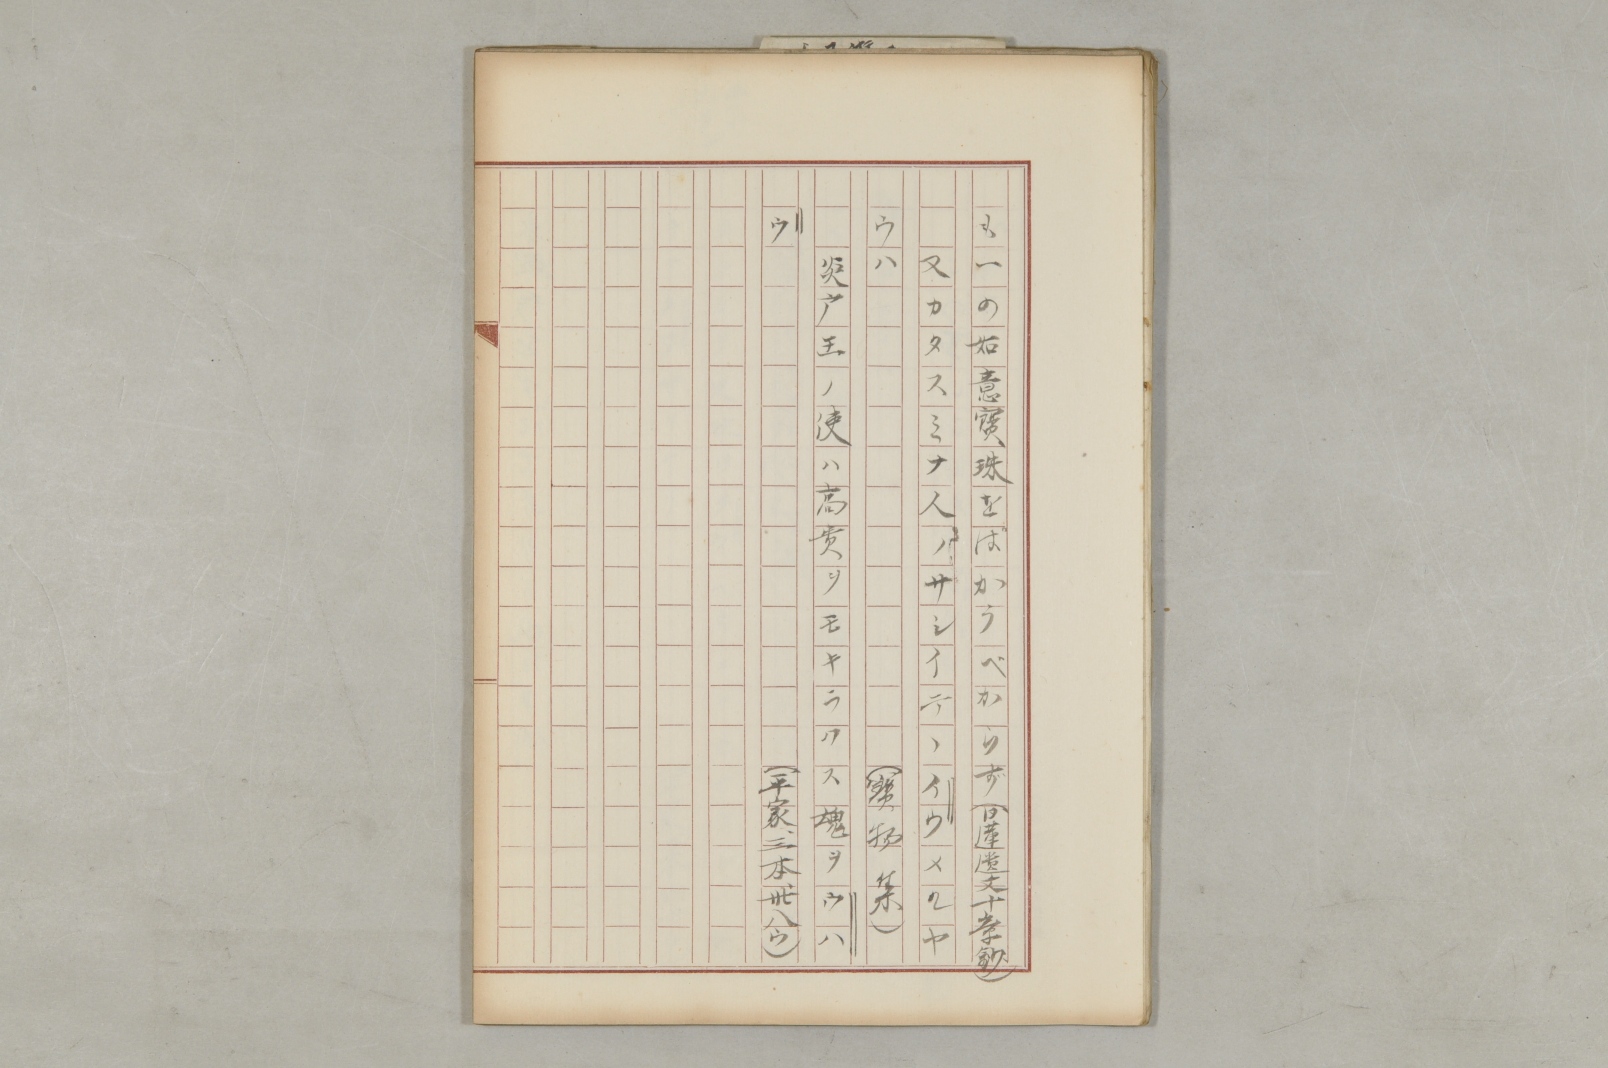 も一の如意寳珠をばかうべからず(日蓮遺文十章鈔)
又カタスミナ人ノサシイテヽイウメルヤ
ウハ(寳物集)
炎广王ノ使ハ高貴ヲモキラワス魂ヲウハ
ウ(平家三本卅八ウ)